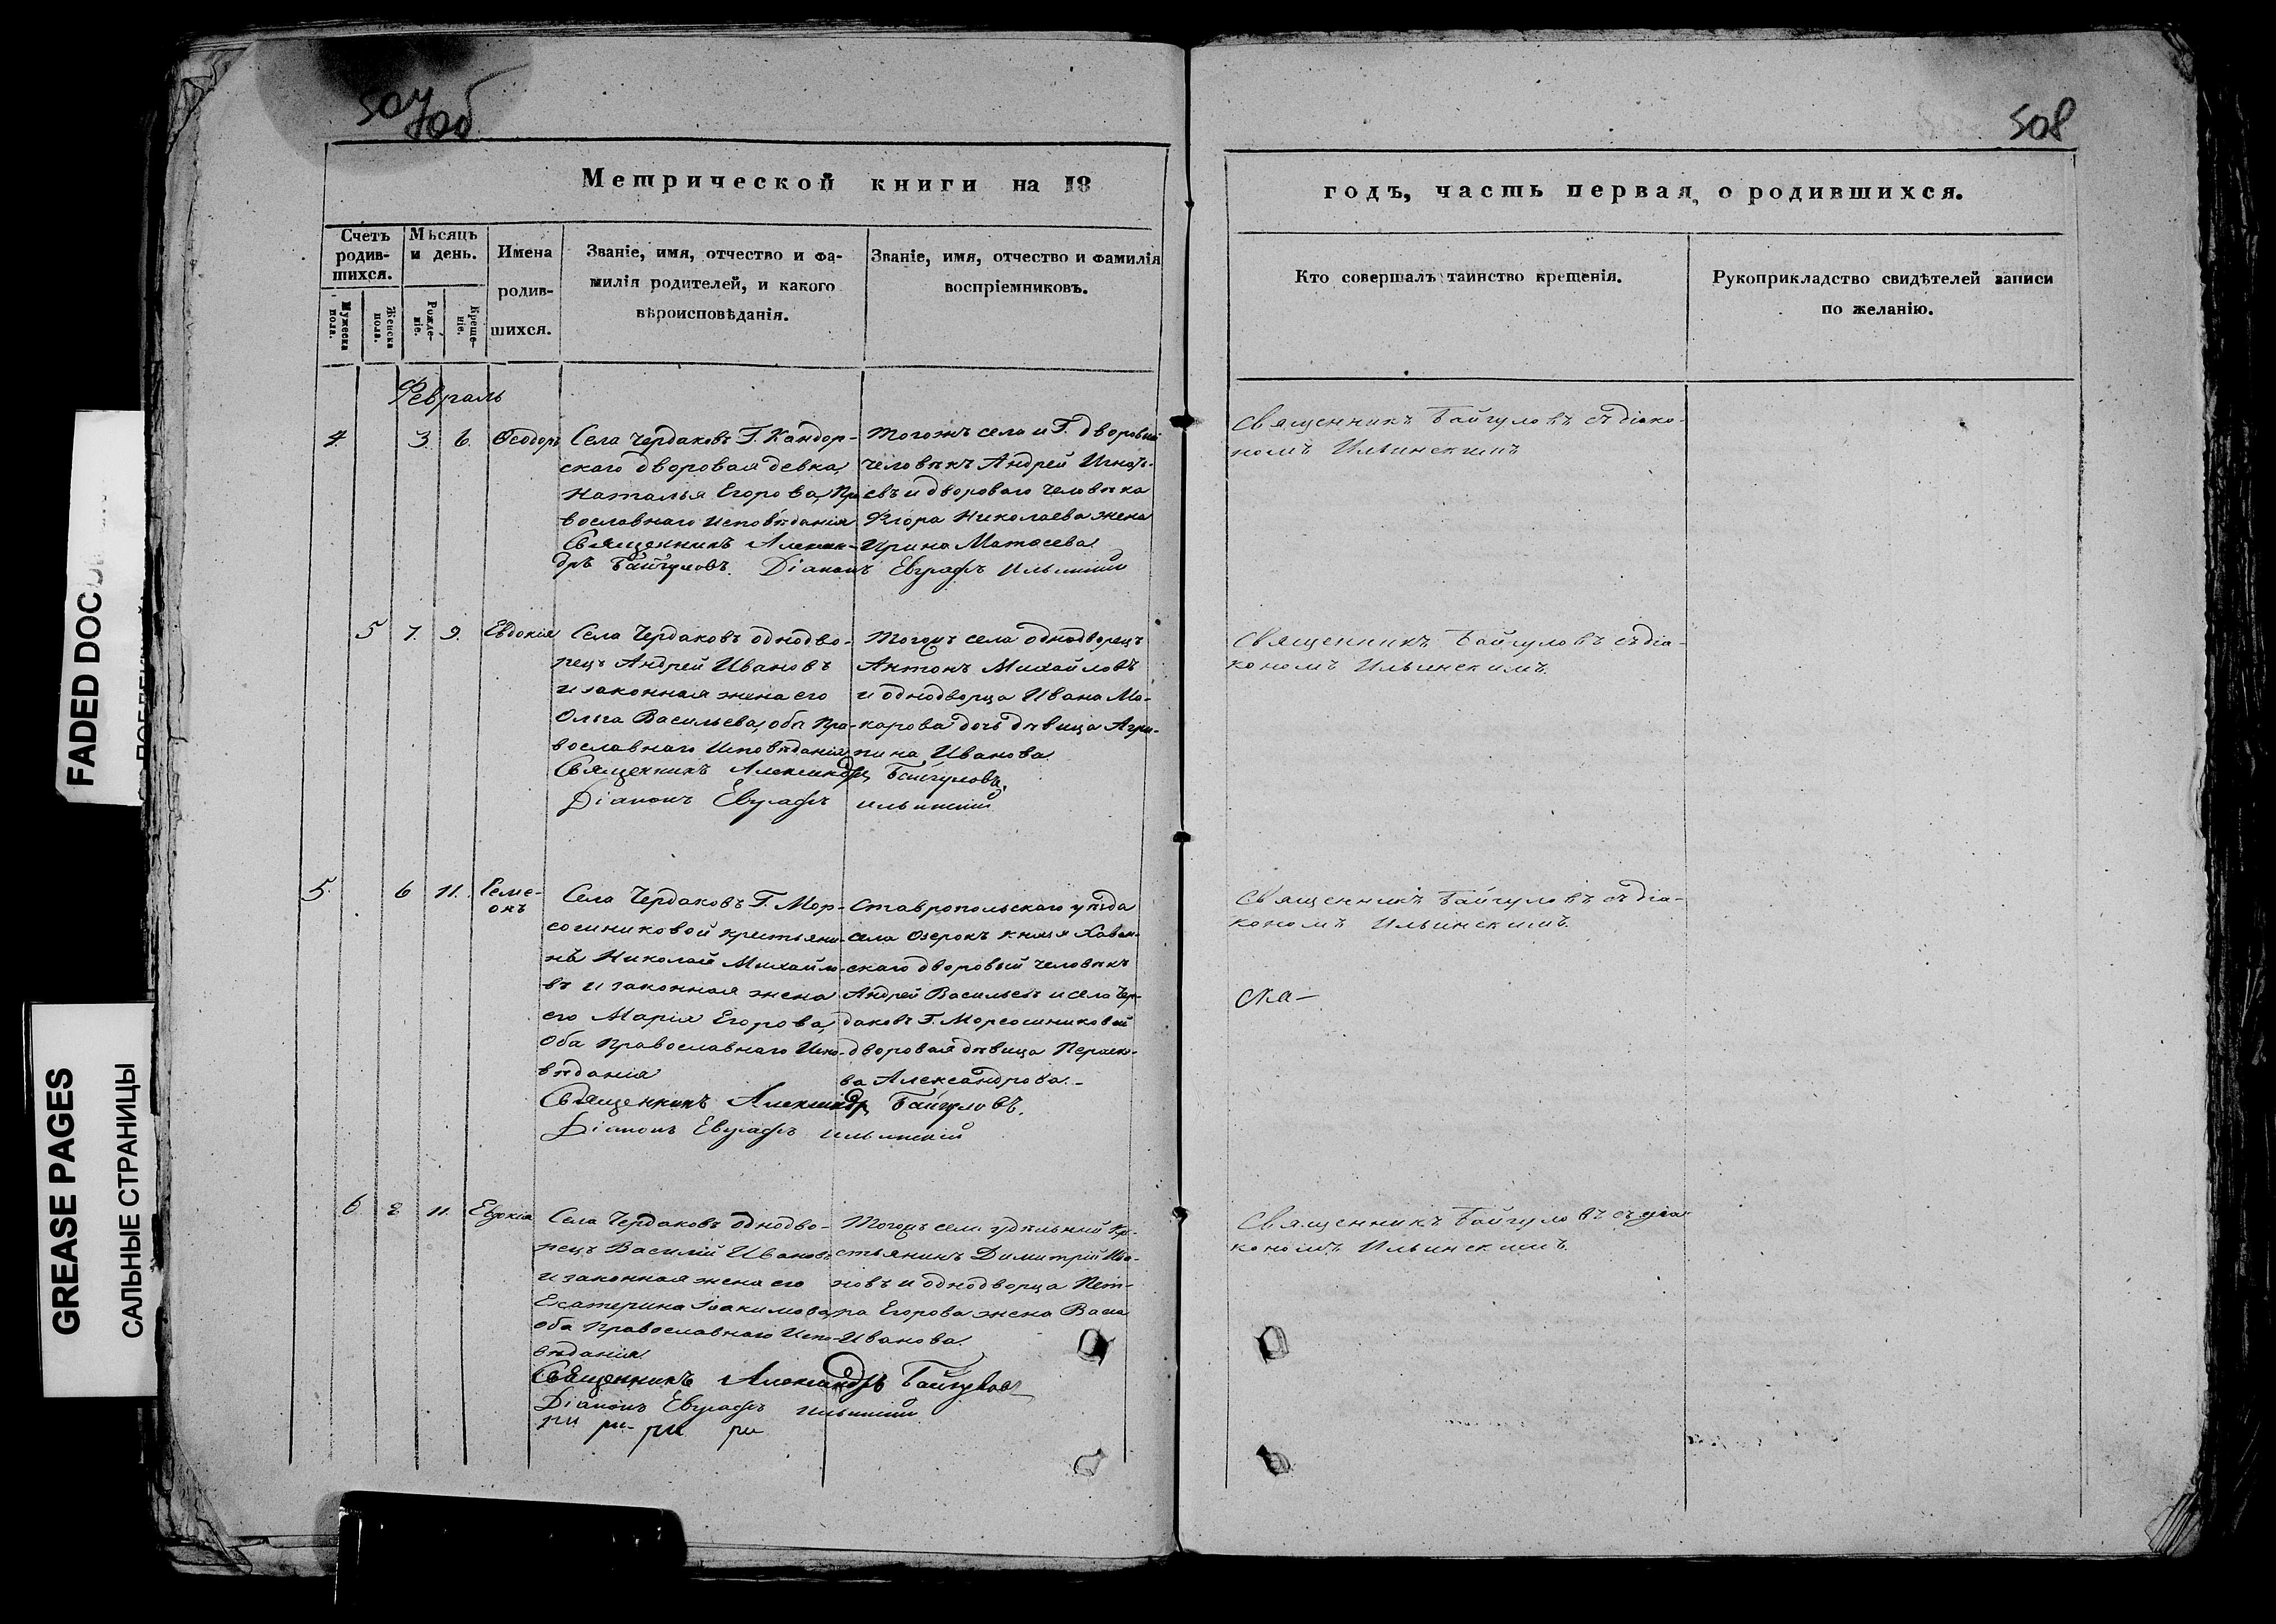 507
об
508
Метрической книги на 18
годъ, часть первая, о родившихся.
Счетъ родив-шихся.
Мужеска пола.
Женска пола.
Мѣсяцъ и день.
Рожде-ніе.
Креще-ніе.
Имена
родив-
шихся.
Званіе, имя, отчество и фа-
милія родителей, и какого
вѣроисповѣданія.
Званіе, имя, отчество и фамилія
воспріемниковъ.
Кто совершалъ таинство крещенія.
Рукоприкладство свидѣтелей записи
по желанію.
Февраль
4 3. 6. Ѳеодоръ
Села Чердаковъ Г. Кандор-
скаго дворовая девка,
Наталья Егорова, Пра
вославнаго Исповѣданія
Священникъ Алексан-
дръ Байгуловъ. Діаконъ Евграфъ Ильинскій
Тогожъ села и Г. дворовый
человѣкъ Андрей Игнать-
евъ и двороваго человѣка
Егора Николаева жена
Ирина Матѳеева
Священникъ Байгуловъ съ діако-
номъ Ильинскимъ
5 7. 9. Евдокія
Села Чердаковъ однодво-
рецъ Андрей Ивановъ
и законная жена его
Ольга Васильева, оба Пра-
вославнаго Исповѣданія
Священникъ Александръ Байгуловъ,
Діаконъ Евграфъ Ильинскій
Тогожъ села однодворецъ
Антонъ Михайловъ
и однодворца Ивана Ма-
карова дочь дѣвица Агри-
пина Иванова
Священникъ Байгуловъ съ діа-
кономъ Ильинскимъ.
5. 6 11. Семе-
онъ
Села Чердаковъ Г. Мор-
сочниковой крестьяни-
нъ Николай Михайло-
въ и законная жена
его Марія Егорова,
Оба Православнаго Испо-
вѣданія
Священникъ Александръ Байгуловъ.
Діаконъ Евграфъ Ильинскій
Ставропольскаго уѣзда
села Озерокъ князя Хован-
скаго дворовый человѣкъ
Андрей Васильевъ и села Чер-
даковъ Г. Морсочниковой
дворовая дѣвица Параске-
ва Александрова.-
Священникъ Байгуловъ съ діа-
кономъ Ильинскимъ.
ска-
6 8 11. Евдокія
Села Чердаковъ однодво-
рецъ Василій Ивановъ
и законная жена его
Екатерина Іоакимова,
оба Православнаго Испо-
вѣданія.
Священникъ Александръ Байгуловъ
Діаконъ Евграфъ Ильинскій
Тогожъ села удѣльный Кр-
стьянинъ Димитрій Ива-
новъ и однодворца Пет-
ра Егорова жена Васса
Иванова.
Священникъ Байгуловъ съ діа-
кономъ Ильинскимъ.
FADED DOCU
GREASE PAGES
САЛЬНЫЕ СТРАНИЦЫ